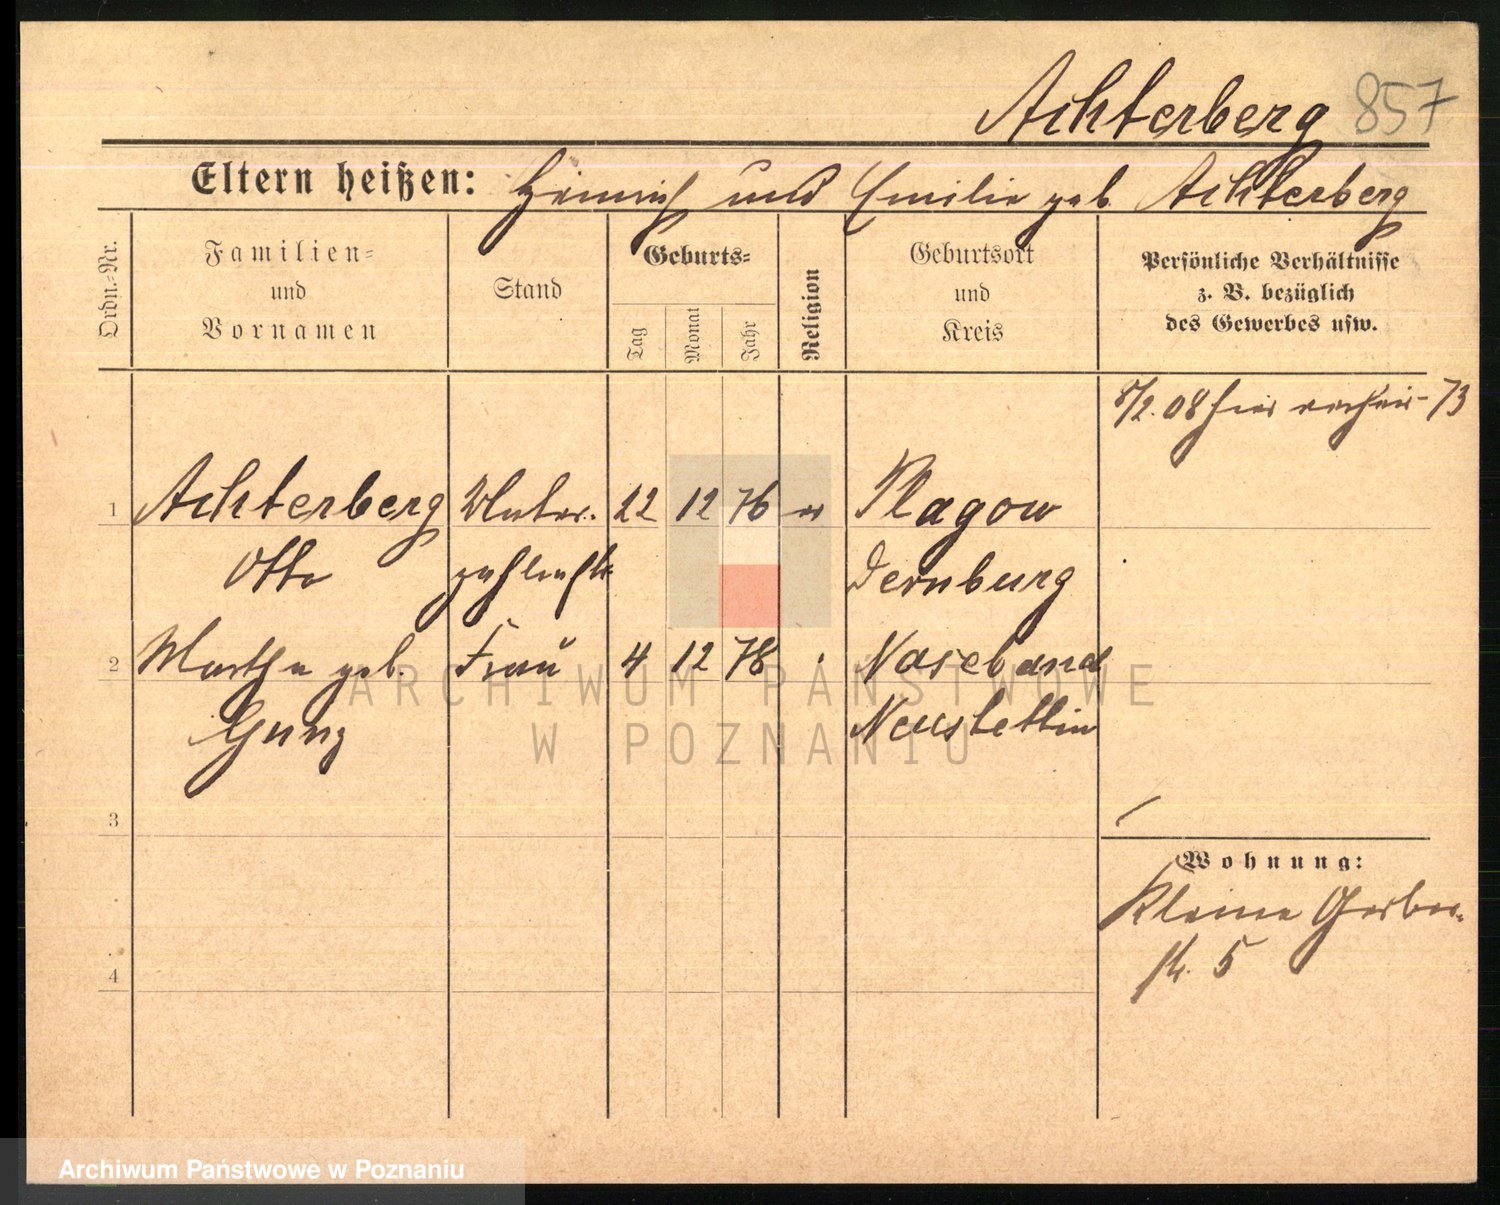 Achterberg 857
Eltern heißen: Heinrich und Emilie geb. Achterberg
Ordn.-Nr.
Familien-
und
Vornamen
Stand
Geburts-
Tag
Monat
Jahr
Religion
Geburtsort
und
Kreis
Persönliche Verhältnisse
z. B. bezüglich
des Gewerbes usw.
8/2. 08 hier 73
1 Achterberg 22 12 76 ev Plagow
Otto Dernburg
2 Martha geb. Frau 4 12 78 Naseband
Neustettin
3
4
Wohnung:
Kleine Gerber-
str. 5
ARCHIWUM PAŃSTWOWE
W POZNANIU
Archiwum Państwowe w Poznaniu